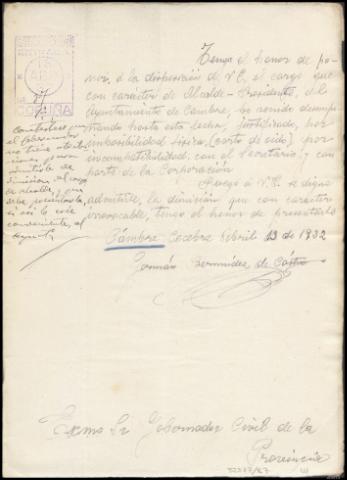 13 ABR
CORUÑA
Tengo el honor de po-
ner, á la disposición de V.E. el cargo que
con carácter de Alcalde-Presidente, del
Ayuntamiento de Cambre, he venido desempe-
ñando hasta esta fecha, justificado, por
imposibilidad física, (corto de oido) por
incompatibilidad, con el Secretario, y con
parte de la Corporación
Ruego á V.E. se digne
admitirle, la dimisión que con carácter
irrevocable, tengo el honor de presentarle
Cambre Cecebre Abril 13 de 1932
Germán Bermúdez de Castro
Contéstese que
el Gobernador
no tiene
para
admitirle la
dimisión, del cargo
de alcalde, y que
debe presentarla,
si así lo cree
conveniente, al
Ayunto
Exmo Sr Gobernador Civil de la
Provincia